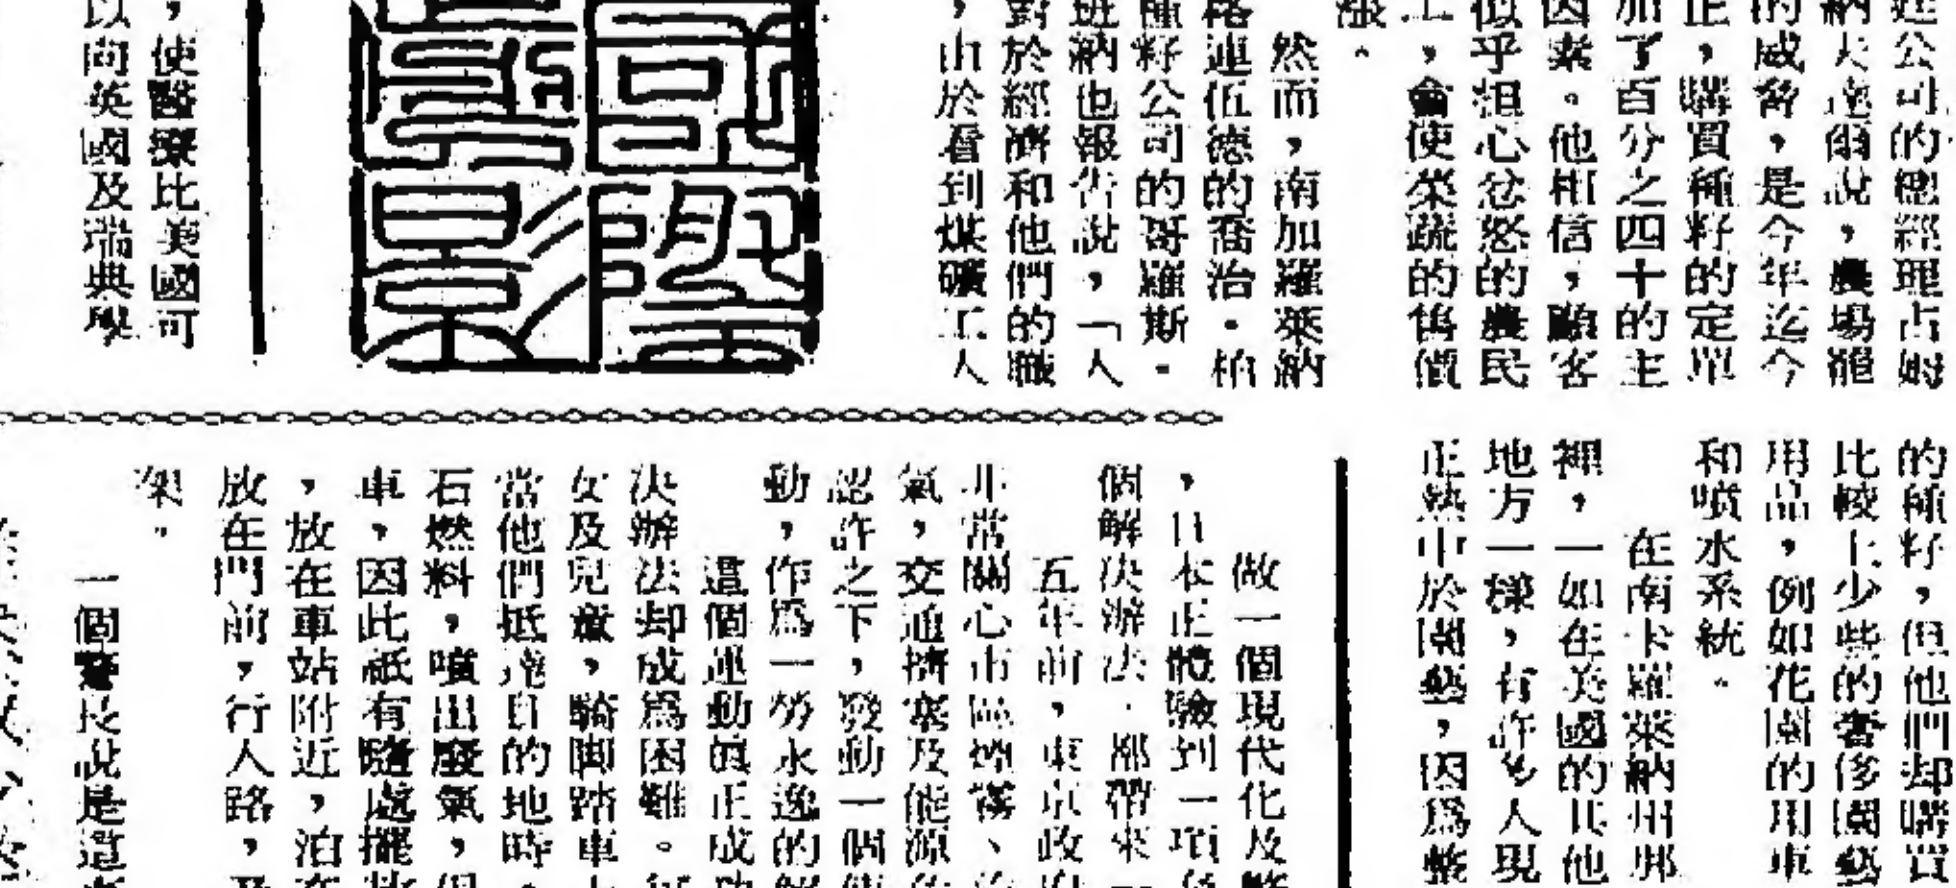 廷公司的總經理占姆
納大達爾說，農場罷
的威脅，是今年迄今
正，購買種籽的定單
加了百分之四十的主
因素。他相信，顧客
似乎担心忿怒的農民
工，會使菜蔬的售價
漲。
然而，南加羅萊納
格連伍德的喬治·柏
種籽公司的哥羅斯·
班納也報告說，「人
對於經濟和他們的職
，由於看到煤礦工人
，使醫療比美國可
以向英國及瑞典學
的種籽，但他們却購買
比較上少些的奢侈園藝
用品，例如花園的用車
和噴水系統。
在南卡羅萊納州那
裡，一如在美國的其他
地方一樣，有許多人現
正熱中於園藝，因爲整
做一個現代化及
，日本正體驗到一項
個解決辦法，都帶來一
五年前，東京政府
非常關心市區煙霧、
氣，交通擠塞及能源
認許之下，發動一個
動，作爲一勞永逸的解
這個運動眞正成功
決辦法却成爲困難。
女及兒童，騎脚踏車
當他們抵達目的地時，
石燃料，噴出廢氣，但
車，因此祗有隨處擺
，放在車站附近，泊在
放在門前，行人路，
架。
一個警長說是這